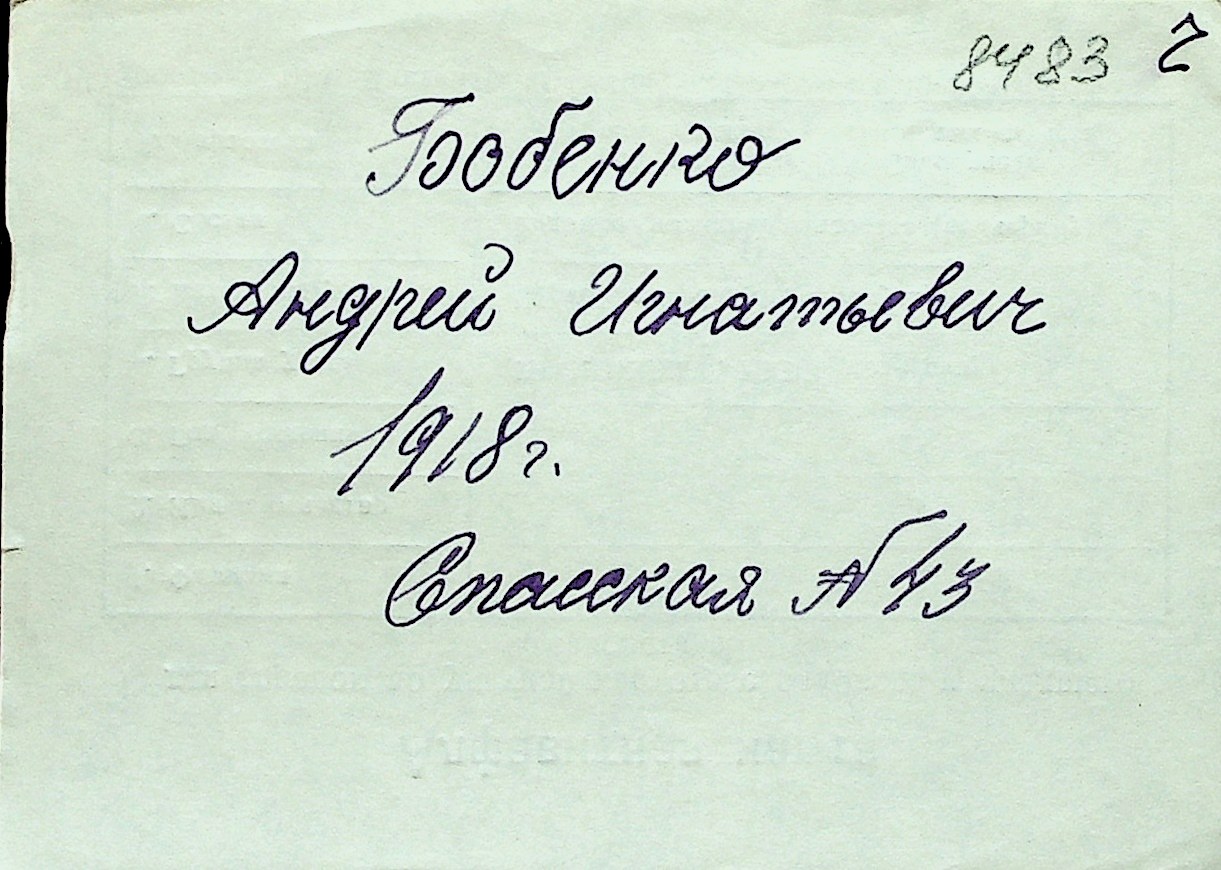 8483
Бобенко
Андрей Игнатьевич
1918 г.
Спасская № 43